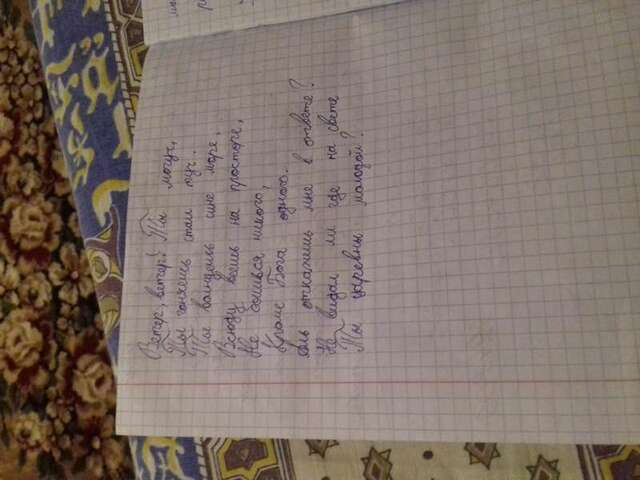 Ветер, ветер! Ты могуч,
Ты гоняешь стаи туч.
Ты волнуешь сине море,
Всюду веешь на просторе,
Не боишься никого,
Кроме Бога одного.
Аль откажешь мне в ответе?
Не видал ли где на свете
Ты царевны молодой?